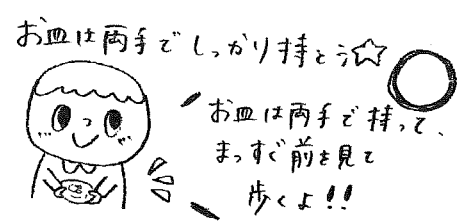 お皿は両手でしっかり持とう☆
お皿は両手で持って、
まっすぐ前を見て
歩くよ!!